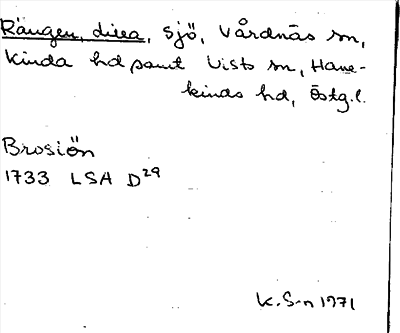 Rängen, dina, sjö, Vårdnäs sn,
Kinda hd samt Vists sn, Hane-
kinds hd, Östg.l.
Brosiön
1733 LSA D29
K.S-n 1971